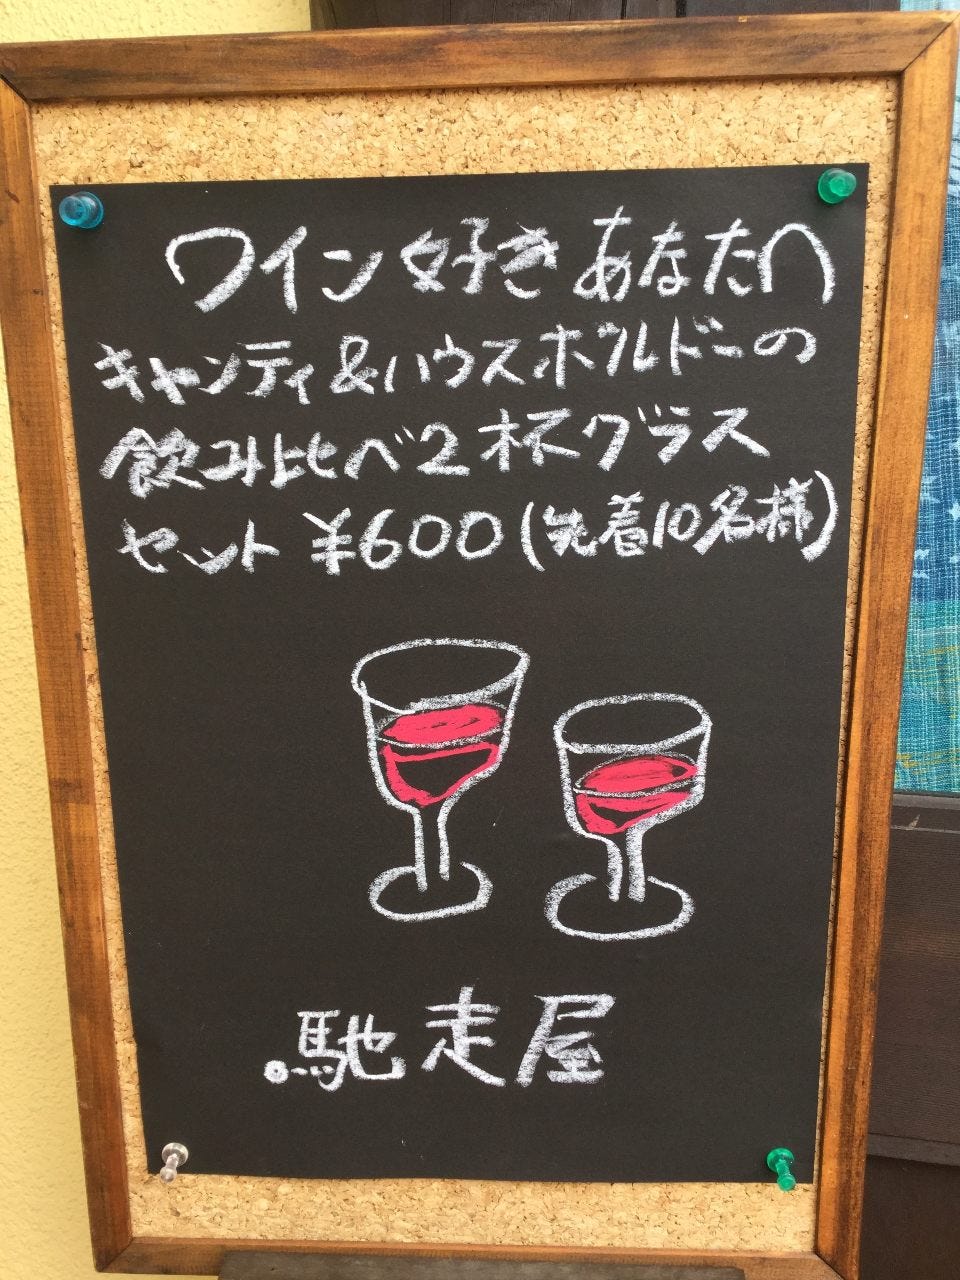 ワイン好きあなたへ
キャンティ&ハウスボルドーの
飲み比べ2杯グラス
セット ¥600(先着10名様)
馳走屋